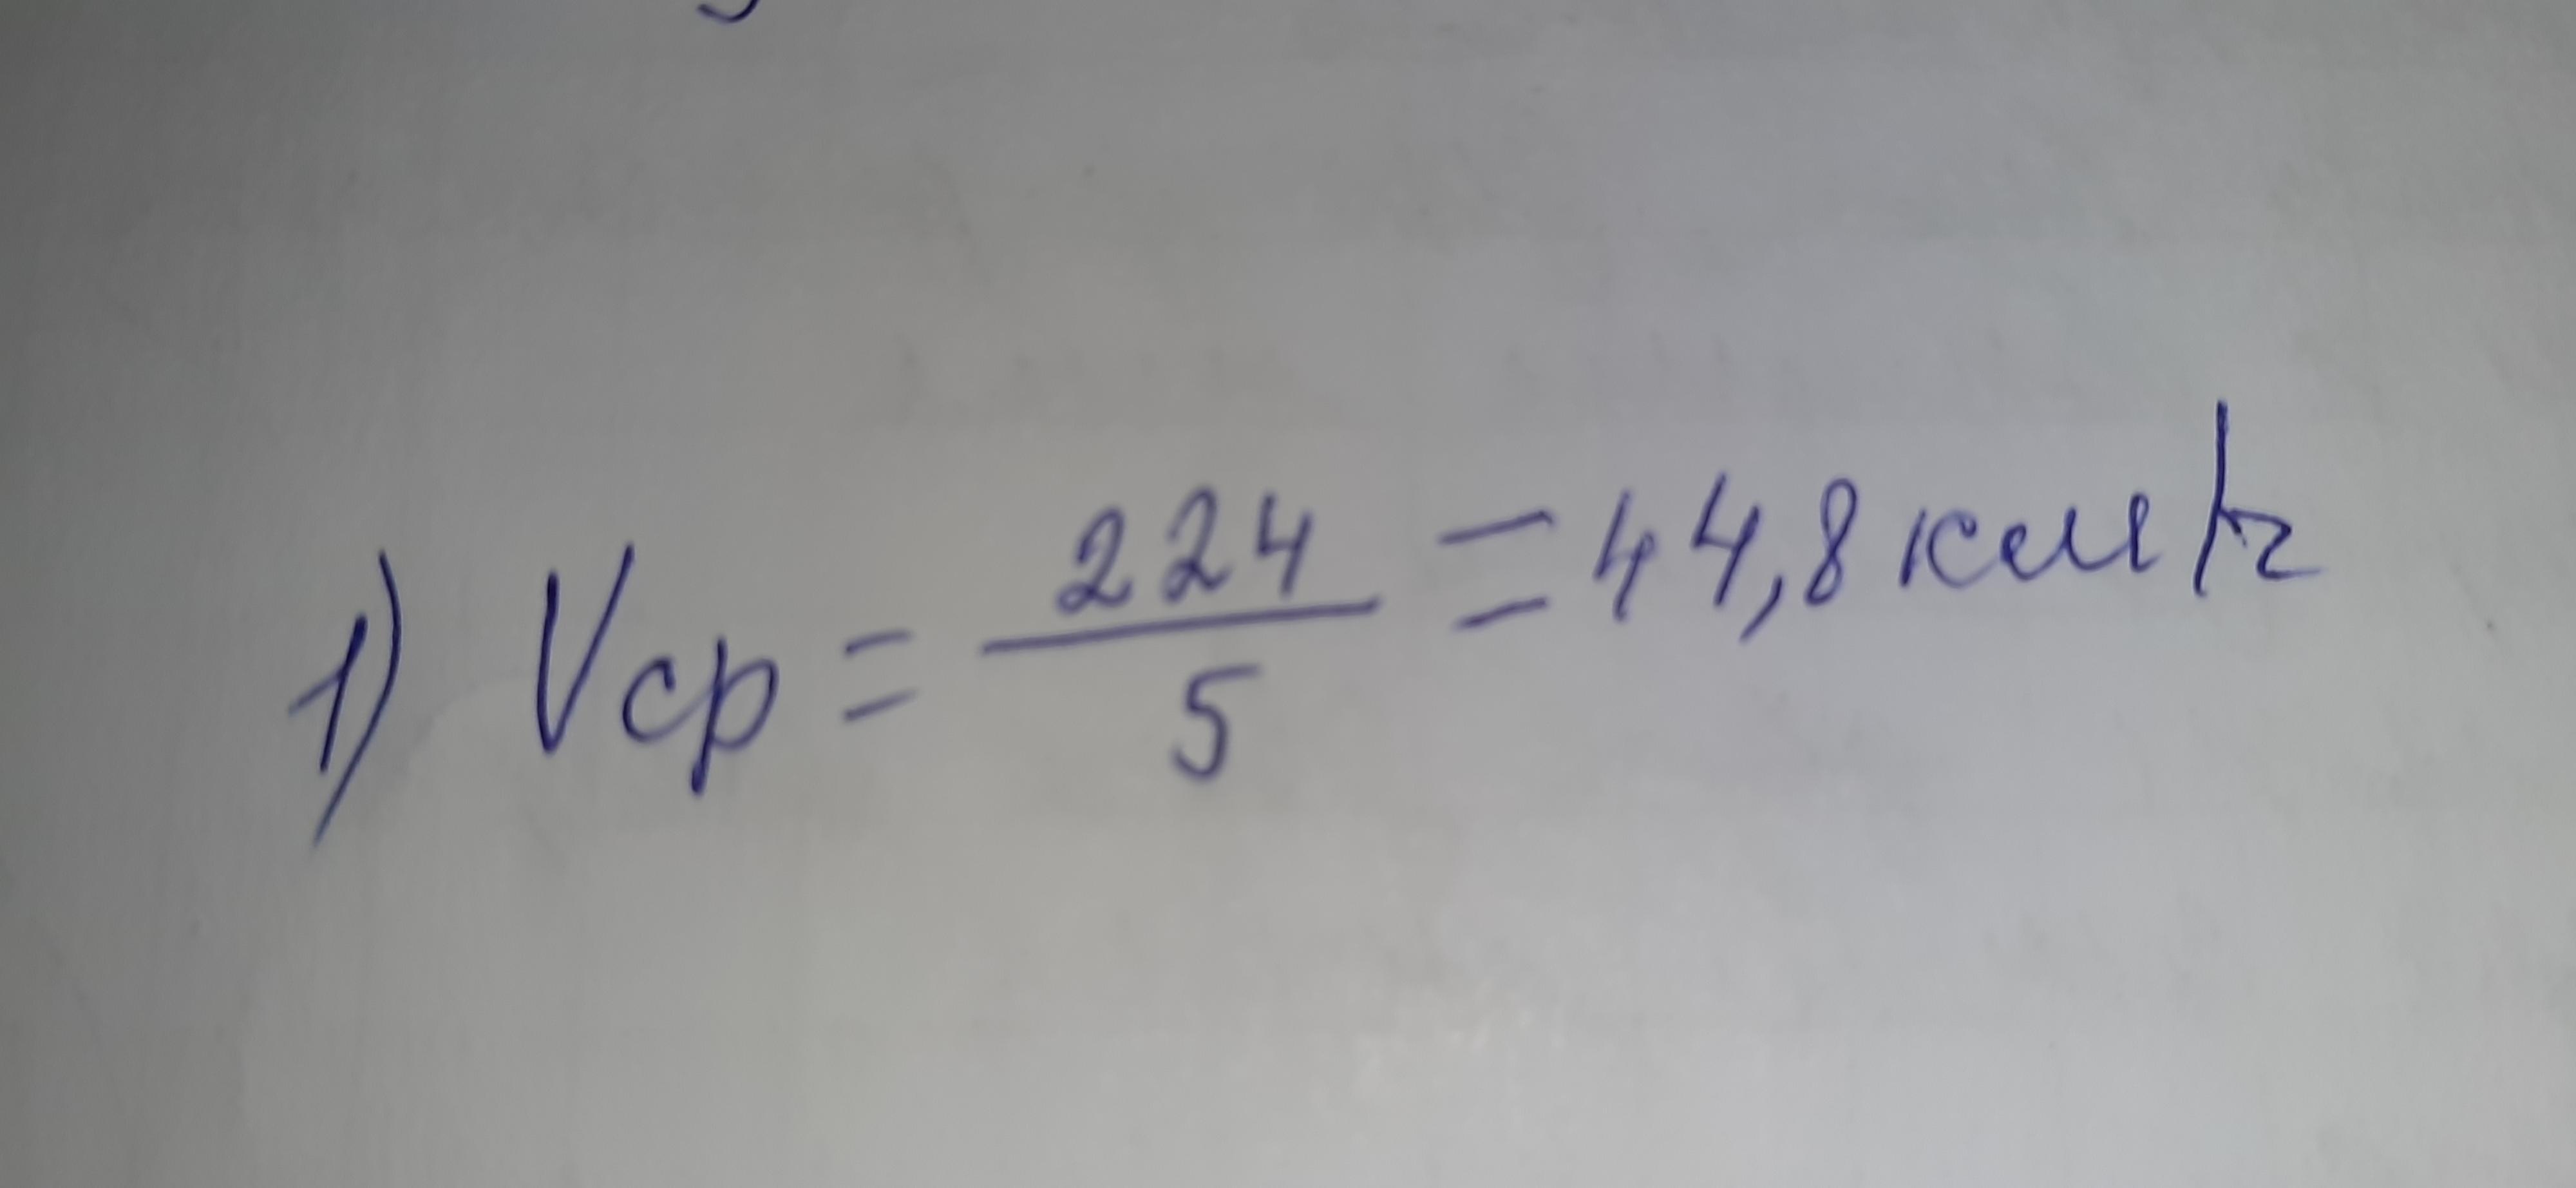 1) Vср = 224/5 = 44,8 км/ч